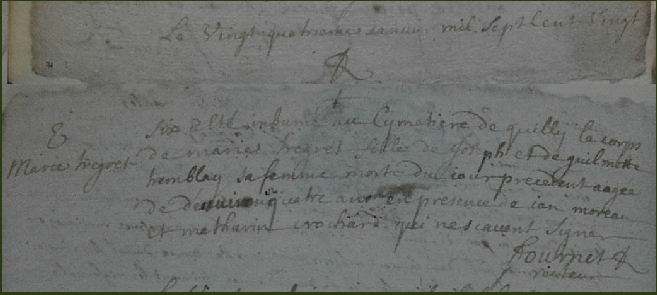 Le Vingtiquatrieme janvier mil sept Cent Vingt
Six a Eté inhumé au Cymetiere de quilly le corps
Marie tregret
de marie tregret fille de Joseph et de guilmette
tremblay sa femme morte du iour precedent aagee
de d'environ quatre ans en presence de ian moreau
et mathurin crochard qui ne scavent Signe
Fournet
recteur